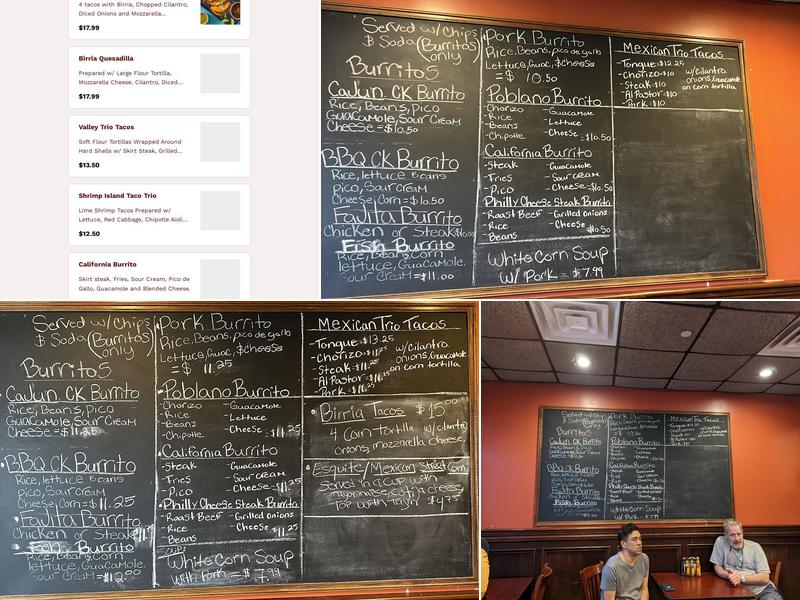 4 tacos with Birria, Chopped Cilantro,
Diced Onions and Mozzarella...
$17.99
Birria Quesadilla
Prepared w/ Large Flour Tortilla,
Mozzarella Cheese, Cilantro, Diced...
$17.99
Valley Trio Tacos
Soft Flour Tortillas Wrapped Around
Hard Shells w/ Skirt Steak, Grilled...
$13.50
Shrimp Island Taco Trio
Lime Shrimp Tacos Prepared w/
Lettuce, Red Cabbage, Chipotle Aioli...
$12.50
California Burrito
Skirt steak, Fries, Sour Cream, Pico de
Gallo, Guacamole and Blended Cheese.
Served w/ Chips
& Soda (Burritos only)
Burritos
Cajun CK Burrito
Rice, Beans, Pico
Guacamole, Sour Cream
Cheese = $10.50
BBQ CK Burrito
Rice, lettuce Beans
pico, Sour cream
Cheese, Corn = $10.50
Fajita Burrito
Chicken or Steak $10.50
Fish Burrito
Rice, Beans, Corn
lettuce, Guacamole,
Sour Cream = $11.00
Pork Burrito
Rice, Beans, pico de gallo
Lettuce, Guac, $Cheese
= $ 10.50
Poblano Burrito
- Chorizo - Guacamole
- Rice - Lettuce
- Beans - Cheese
- Chipotle = $10.50
California Burrito
- Steak - Guacamole
- Fries - Sour cream
- Pico - Cheese $10.50
Philly Cheese Steak Burrito
- Roast Beef - Grilled onions
- Rice - Cheese
- Beans $10.50
White Corn Soup
w/ Pork = $7.99
Mexican Trio Tacos
- Tongue = $12.25
- Chorizo = $10
- Steak = $10
- Al Pastor = $10
- Pork = $10
w/ cilantro
onions, Guacamole
on corn tortilla
Served w/ Chips
& Soda (Burritos only)
Burritos
Cajun CK Burrito
Rice, Beans, Pico
Guacamole, Sour Cream
Cheese = $11.25
BBQ CK Burrito
Rice, lettuce Beans
pico, Sour cream
Cheese, Corn = $11.25
Fajita Burrito
Chicken or Steak
Fish Burrito
Rice, Beans, Corn
lettuce, Guacamole,
Sour Cream = $12.00
Pork Burrito
Rice, Beans, pico de gallo
Lettuce, Guac, $Cheese
= $ 11.25
Poblano Burrito
- Chorizo - Guacamole
- Rice - Lettuce
- Beans - Cheese
- Chipotle $11.25
California Burrito
- Steak - Guacamole
- Fries - Sour cream
- Pico - Cheese $11.25
Philly Cheese Steak Burrito
- Roast Beef - Grilled onions
- Rice - Cheese $11.25
- Beans
White Corn Soup
with Pork = $7.99
Mexican Trio Tacos
- Tongue = $13.25
- Chorizo = $11.25
- Steak = $11.25
- Al Pastor = $11.25
- Pork = $11.25
w/ cilantro
onions, Guacamole
on corn tortilla
Birria Tacos $15.00
4 Corn tortilla w/ cilantro
onions, mozzarella cheese,
Esquite/Mexican Street Corn
Served in a cup with
mayonnaise, cotija cheese
Top with tajin $4.75
Served w/ Chips
& Soda (Burritos only)
Burritos
Cajun CK Burrito
BBQ CK Burrito
Fajita Burrito
Chicken or Steak
Fish Burrito
Pork Burrito
Poblano Burrito
California Burrito
Philly Cheese Steak Burrito
White Corn Soup
w/ Pork = $7.99
Mexican Trio Tacos